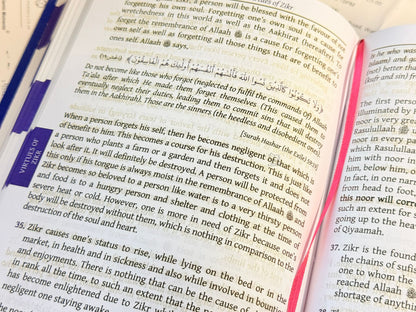 zikr, a person will be blessed with the favour of not
forgetting his own soul. Forgetting one's own soul is a cause for
wretchedness in this world as well as the Aakhirat (hereafter). To
forget the remembrance of Allaah ﷻ is a cause of forgetting one's
own self as well as forgetting all those things that are of benefit to
ones self. Allaah ﷻ says,
وَلَا تَكُونُوا كَالَّذِينَ نَسُوا اللَّهَ فَأَنْسَاهُمْ أَنْفُسَهُمْ أُولَٰئِكَ هُمُ الْفَاسِقُونَ
Do not become like those who forgot (neglected to fulfil the commands Of) Allaah
Ta'ala after which He made them forget themselves (This caused them to
eventually neglect their duties, leading them to commit sins that will destroy
them in the Aakhirah). Those are the sinners (the heedless and disobedient ones).
[Surah Hashar (the Exile) 59:19]
When a person forgets his self, then he becomes negligent of that which is
of benefit to him. This becomes a course for his destruction. This is just like
a person who plants a farm or a garden and then forgets it and does not
look after it. It will definitely be destroyed. A person will be protected from
this only if his tongue is always moist in the remembrance of Allaah ﷻ and
zikr becomes so beloved to a person like water is to a very thirsty person
and food is to a hungry person and shelter and clothing at the time of
severe heat or cold. However, one is more in need of Zikr, because one's
body will be destroyed without them, which is nothing in comparison to the
destruction of the soul and heart.
35. Zikr causes one's status to rise, while lying on the bed or in the
market, in health and in sickness and also while involved in bounties
and enjoyments. There is nothing that can be the cause of such increase
in rank all the time, to such an extent that the person whose heart
has become enlightened due to Zikr, while
negligent one staying awake
VIRTUES OF
ZIKR
he who wa
The first per
illuminated
Rasulullaah
in every par
Rasulullaah
him with noor
him with noor
below him,
in fact, in ran
from head to foot.
this noor will cor
such an extent
going up to the heav
of Qiyaamah.
37. Zikr is the found
the chains of sufi
one to whom the
reached Allaah ﷻ
shortage of anything